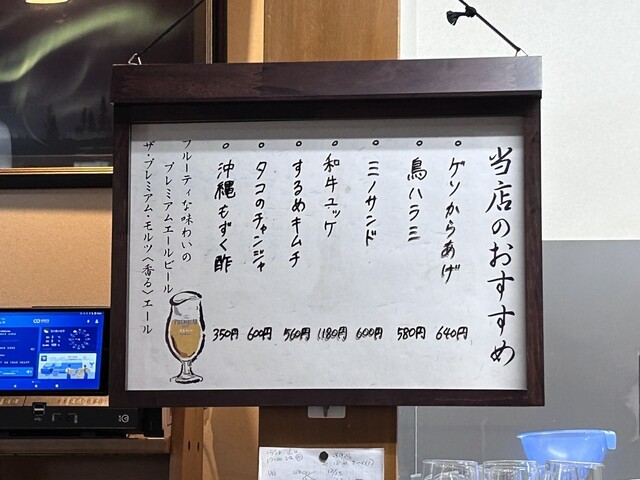 当店のおすすめ
○ ゲソからあげ 640円
○ 鳥ハラミ 580円
○ ミノサンド 600円
○ 和牛ユッケ 1180円
○ するめキムチ 560円
○ タコのチャンジャ 600円
○ 沖縄もずく酢 350円
フルーティな味わいの
プレミアムエールビール
ザ・プレミアム・モルツ〈香る〉エール